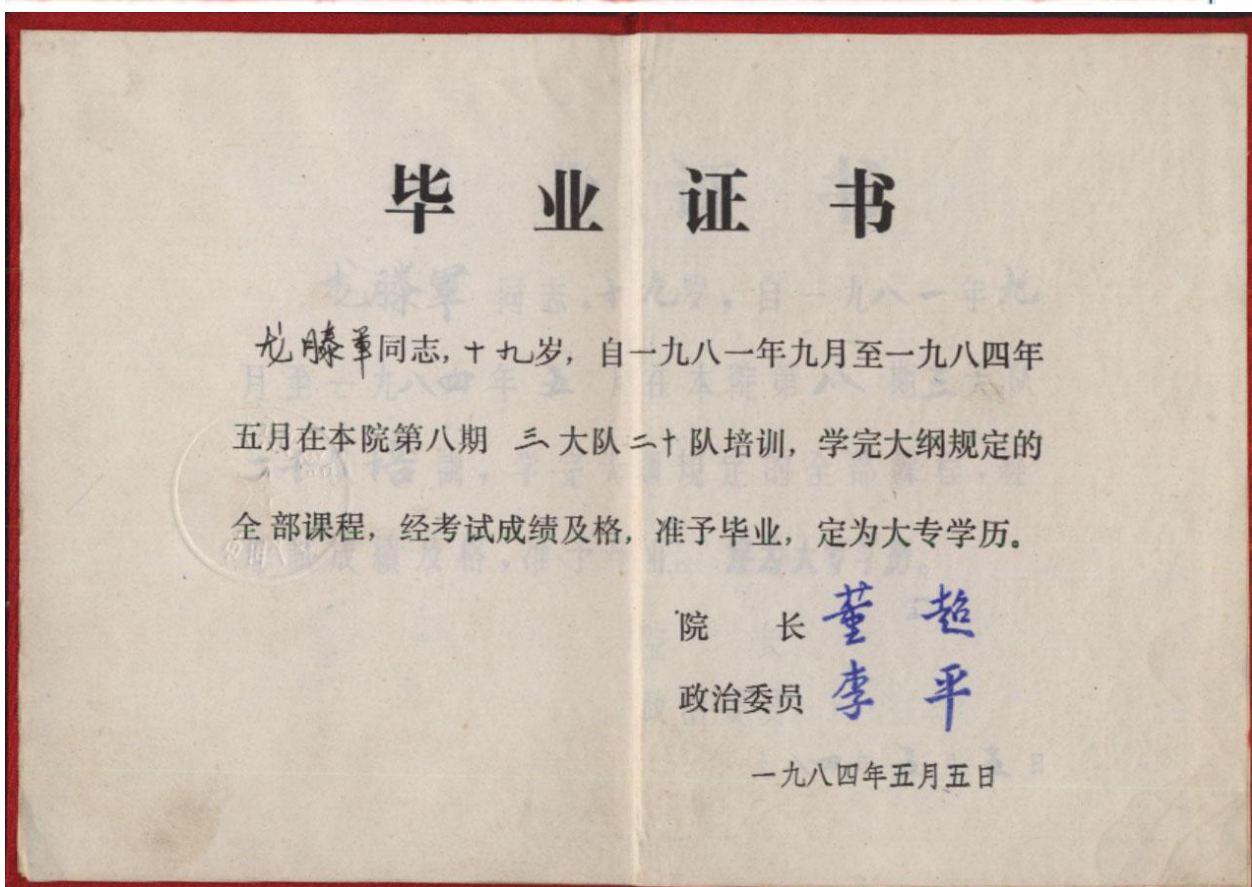 毕业证书
龙滕军同志,十九岁,自一九八一年九月至一九八四年
五月在本院第八期 三大队二十队培训,学完大纲规定的
全部课程,经考试成绩及格,准予毕业,定为大专学历。
院 长 董超
政治委员 李平
一九八四年五月五日